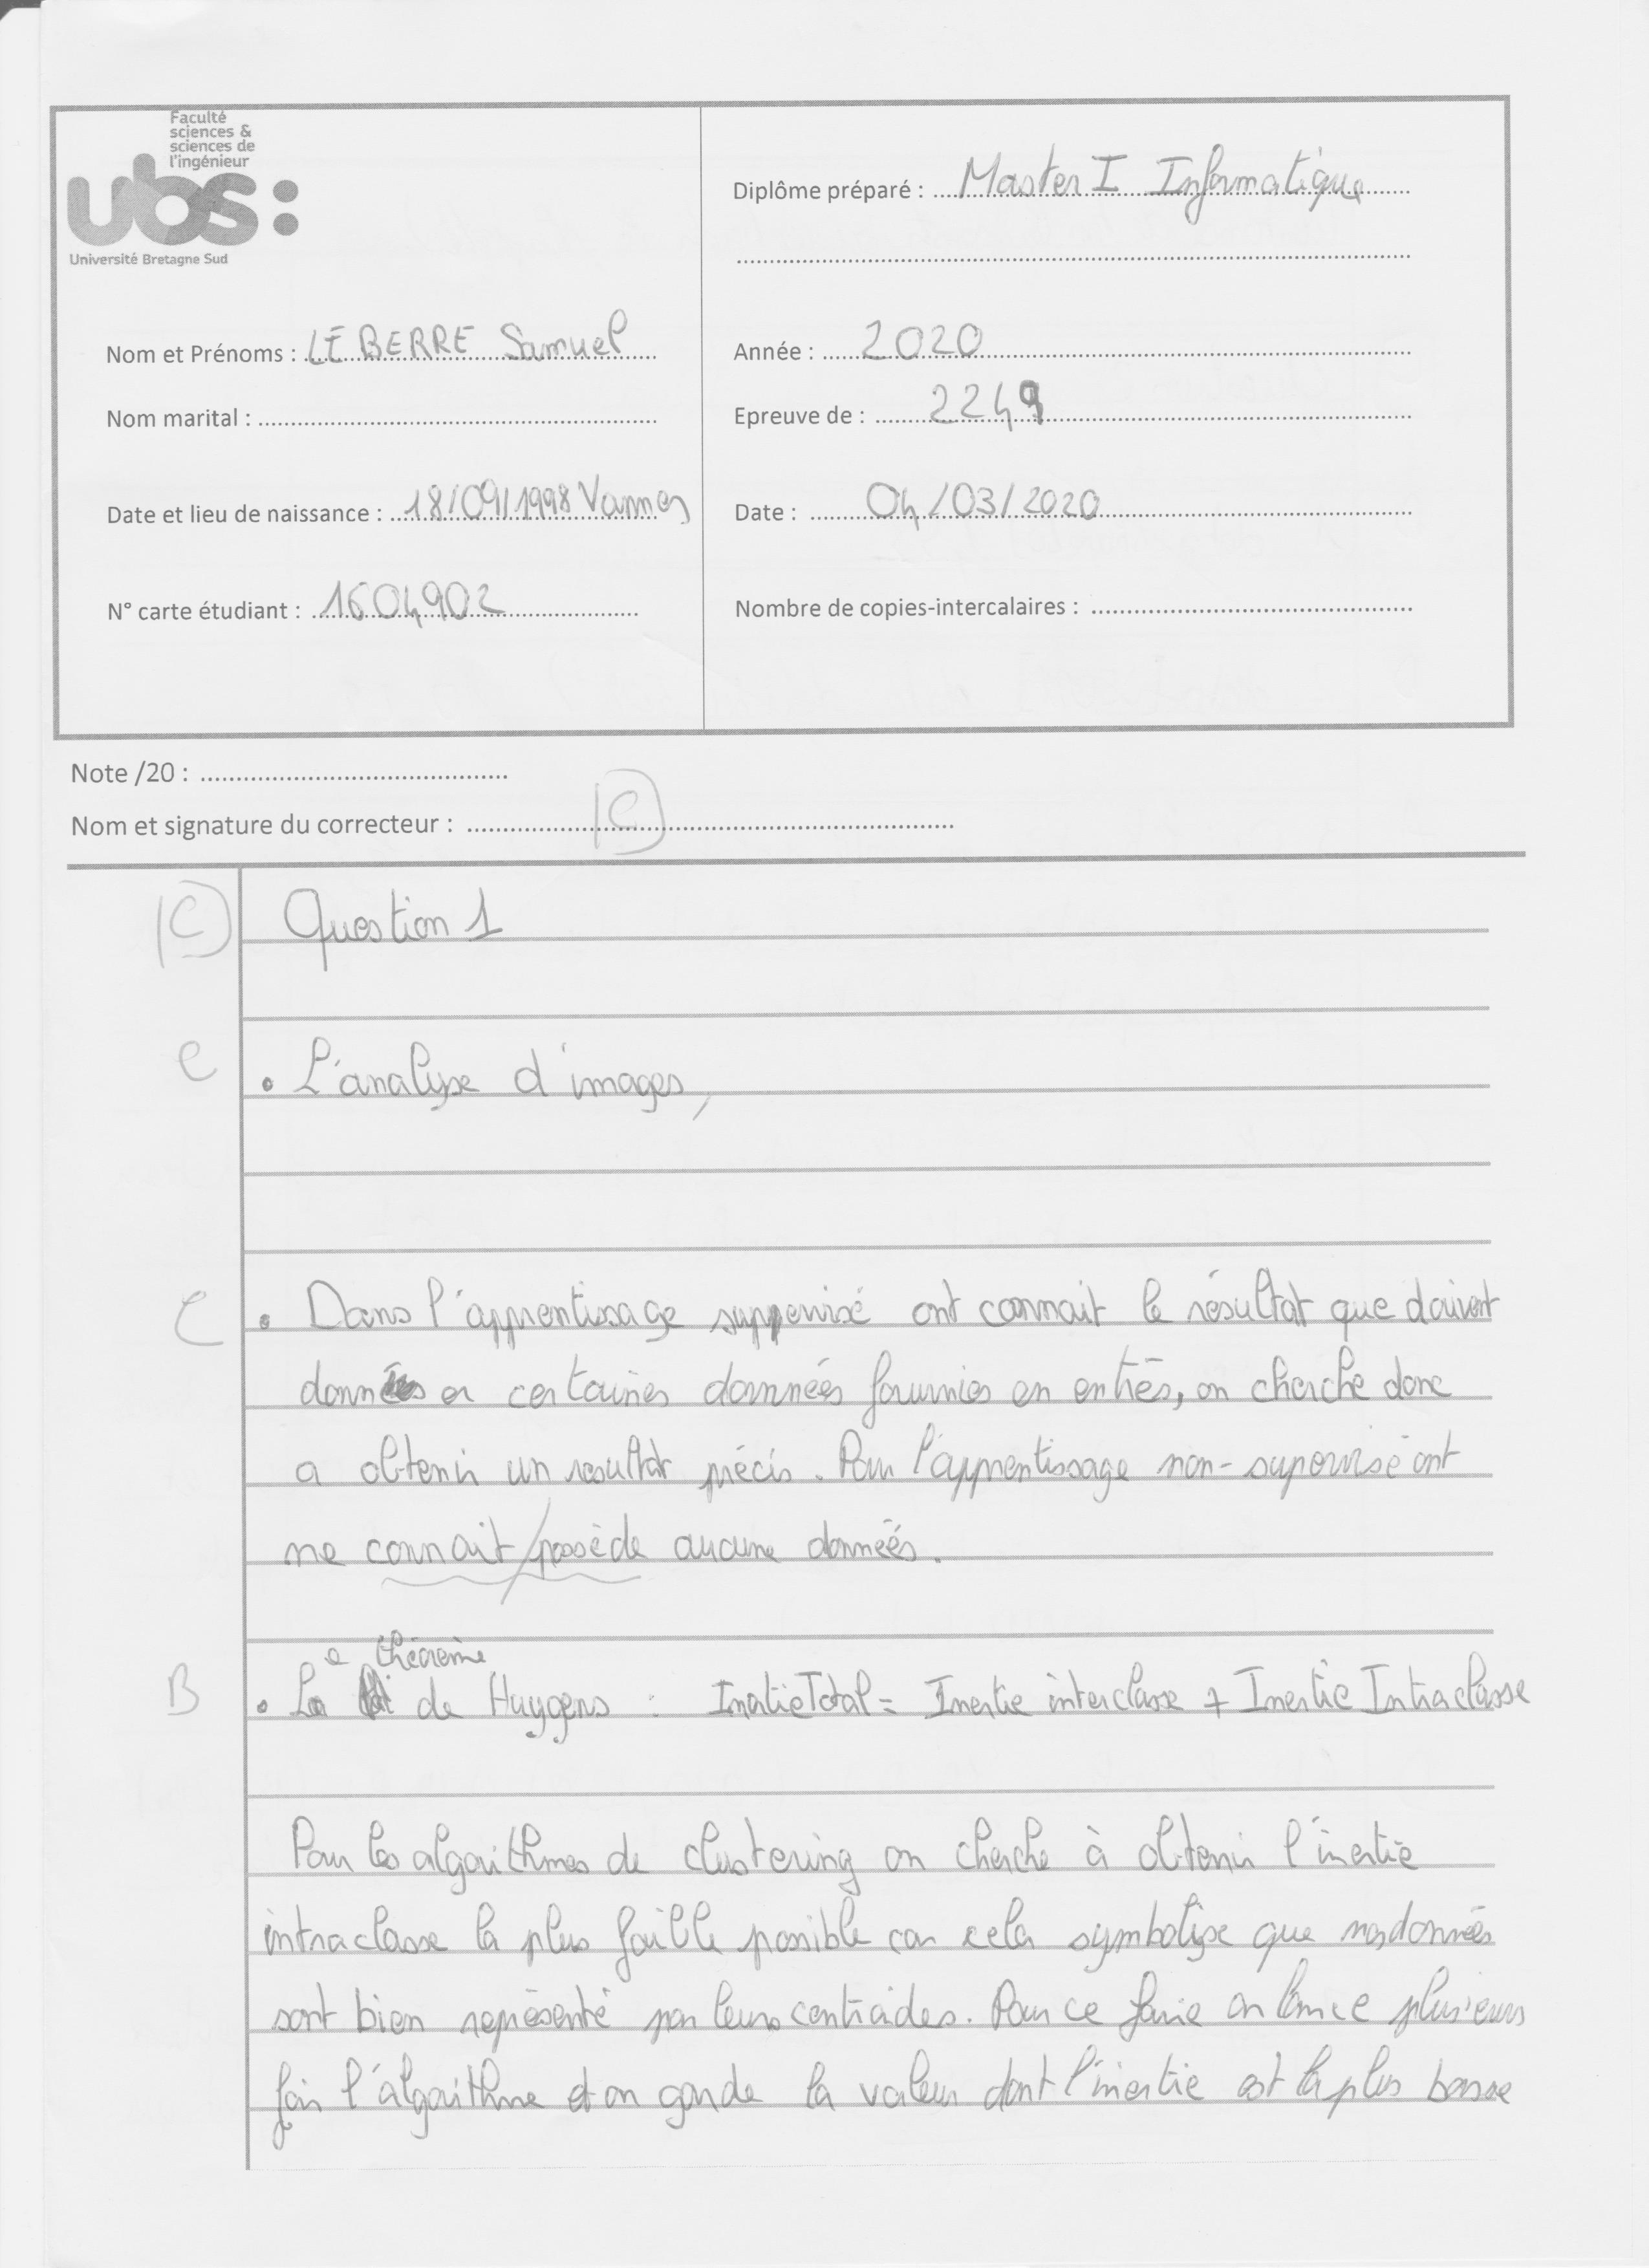 Faculté
sciences &
sciences de
l'ingénieur
ubs:
Université Bretagne Sud
Diplôme préparé : Master I Informatique
Nom et Prénoms : LE BERRE Samuel
Année : 2020
Nom marital :
Epreuve de : 2249
Date et lieu de naissance : 18/09/1998 Vannes
Date : 04/03/2020
N° carte étudiant : 1604902
Nombre de copies-intercalaires :
Note /20 :
Nom et signature du correcteur : C
C Question 1
C • L'analyse d'images,
C • Dans l'apprentissage suppervisé ont connait le résultat que doivent
données a certaines données fournies en entrés, on cherche donc
a obtenir un resultat précis. Pour l'apprentissage non-supervisé ont
ne connait/possède aucune données.
B • Le théorème de Huygens : InertieTotal = Inertie interclasse + Inertie Intraclasse
Pour les algorithmes de clustering on cherche à obtenir l'inertie
intraclasse la plus faible possible car cela symbolise que nos données
sont bien représenté par leurs centroides. Pour ce faire on lance plusieurs
fois l'algorithme et on garde la valeur dont l'inertie est la plus basse